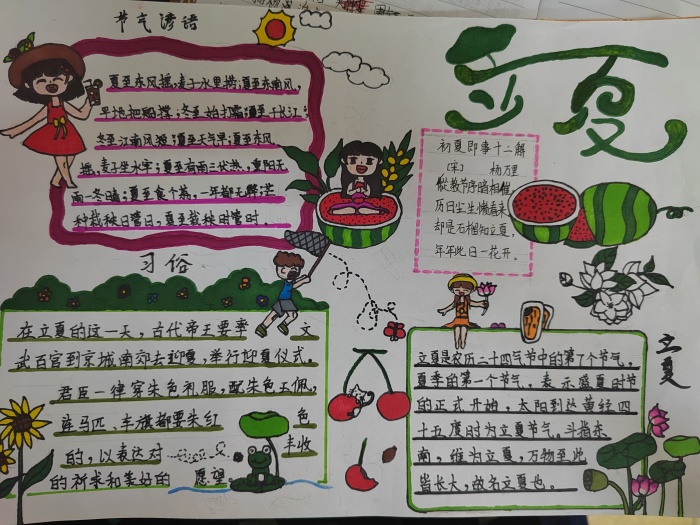 节气谚语
夏至东风摇,麦子水里捞;夏至东南风,
平地把船撑;冬至始打霜;夏至干长江;
冬至江南风短;夏至天气旱;夏至东风
摇,麦子坐水牢;夏至有雨三伏热,重阳无
雨一冬晴;夏至食个荔,一年都无弊;芒
种栽秧日管日,夏至栽秧时管时
立夏
初夏即事十二解
[宋] 杨万里
从教节序暗相催
历日尘生懒看来
却是石榴知立夏,
年年此日一花开。
习俗
在立夏的这一天,古代帝王要率 文
武百官到京城南郊去迎夏,举行迎夏仪式。
君臣一律穿朱色礼服,配朱色玉佩,
连马匹、车旗都要朱红 色
的,以表达对 丰收
的祈求和美好的 愿望。
立夏
立夏是农历二十四节气中的第7个节气,
夏季的第一个节气,表示盛夏时节
的正式开始,太阳到达黄经四
十五度时为立夏节气。斗指东
南,维为立夏,万物至此
皆长大,故名立夏也。